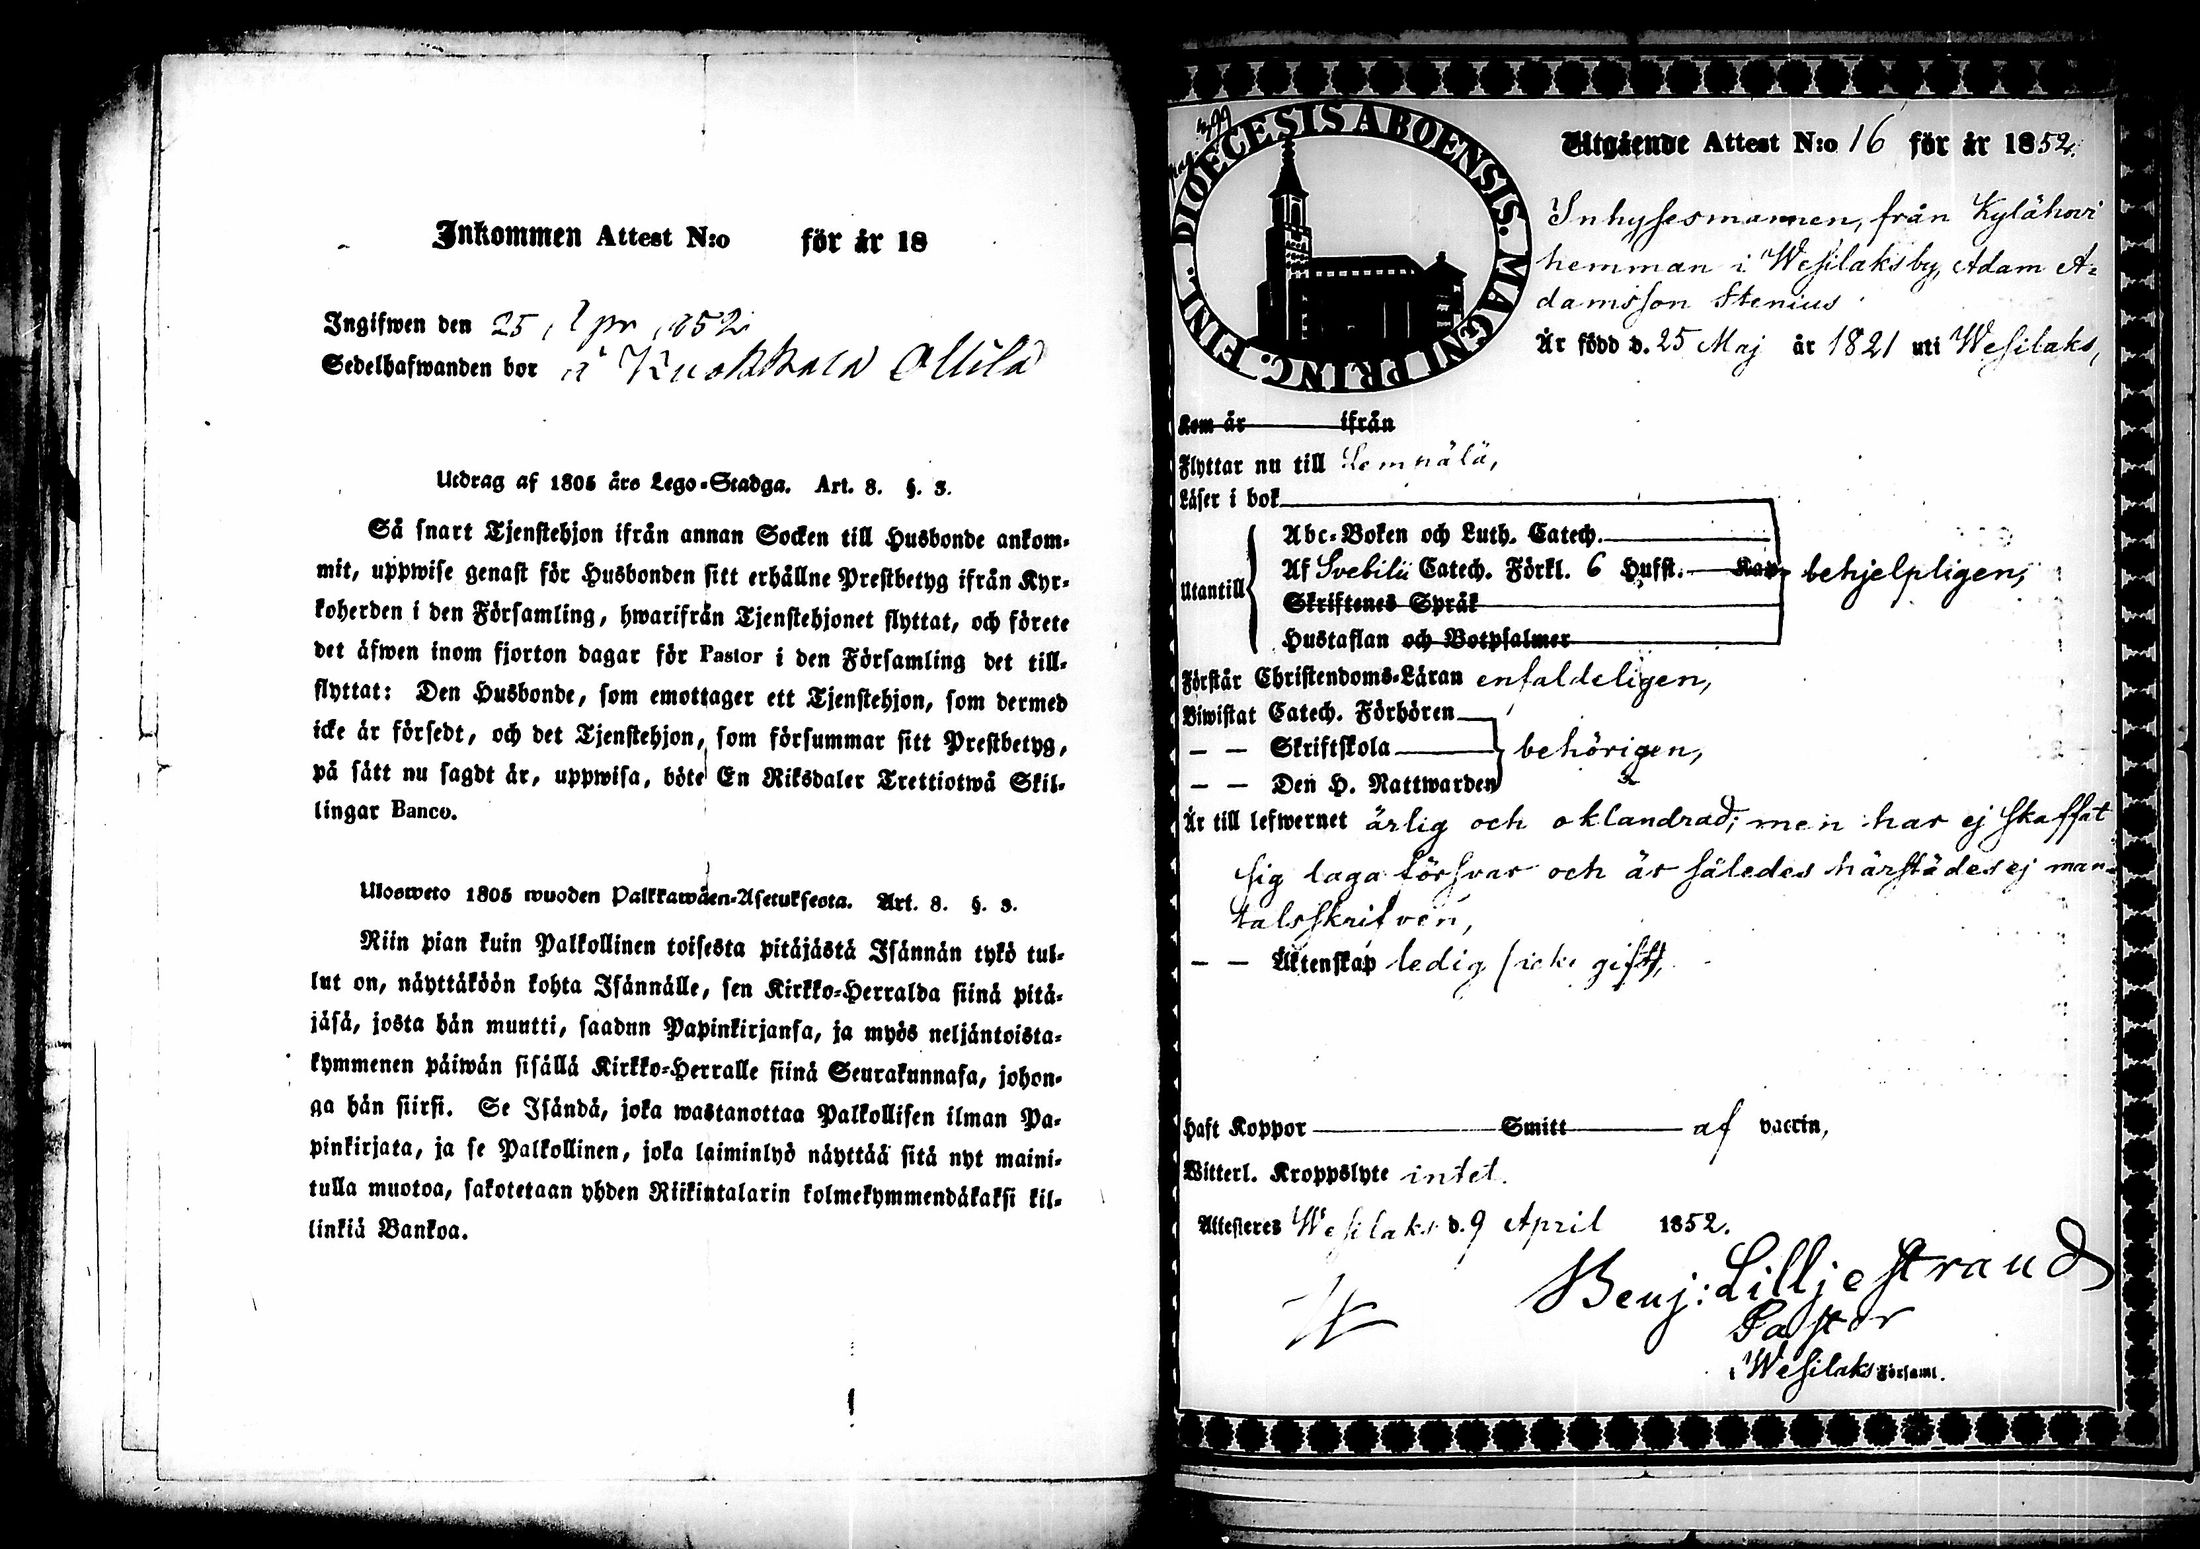 Inkommen Attest N:o för år 18
Ingifwen den 25 Apr 1852
Sedelhafwanden bor å Kuokkala Ollila
Utdrag af 1805 års Lego-Stadga. Art. 8. §. 3.
Så snart Tjenstehjon ifrån annan Socken till Husbonde ankom-
mit, uppwise genast för Husbonden sitt erhållne Prestbetyg ifrån Kyr-
koherden i den Församling, hwarifrån Tjenstehjonet flyttat, och förete
det äfwen inom fjorton dagar för Pastor i den Församling det till-
flyttat: Den Husbonde, som emottager ett Tjenstehjon, som dermed
icke är försedt, och det Tjenstehjon, som försummar sitt Prestbetyg,
på sätt nu sagdt är, uppwisa, böte En Riksdaler Trettiotwå Skil-
lingar Banco.
Ulosweto 1805 wuoden Palkkawäen-Asetuksesta. Art. 8. §. 3.
Niin pian kuin Palkollinen toisesta pitäjästä Isännän tykö tul-
lut on, näyttäköön kohta Isännälle, sen Kirkko-Herralda siinä pitä-
jäsä, josta hän muutti, saadun Papinkirjansa, ja myös neljäntoista-
kymmenen päiwän sisällä Kirkko-Herralle siinä Seurakunnasa, johon-
ga hän siirsi. Se Isändä, joka wastanottaa Palkollisen ilman Pa-
pinkirjata, ja se Palkollinen, joka laiminlyö näyttää sitä nyt maini-
tulla muotoa, sakotetaan yhden Riikintalarin kolmekymmendäkaksi kil-
linkiä Bankoa.
pag. 399
FINL. DIOECESIS ABOENSIS. MAGNI PRINC.
Utgående Attest N:o 16 för år 1852.
Inhyssesmannen, från Kylähovi
hemman i Wesilaks by, Adam A-
damsson Stenius
Är född d. 25 Maj år 1821 uti Wesilaks,
Kom år ifrån
Flyttar nu till Lempälä,
Läser i bok
Abc-Boken och Luth. Catech.
Utantill Af Svebilii Catech. Förkl. 6 Hufst. Kap. behjelpligen,
Skriftenes Språk
Hustaflan och Botpsalmer
Förstår Christendoms-Läran enfaldeligen,
Biwistat Catech. Förhören
— — Skriftskola behörigen,
— — Den H. Nattwarden
Är till lefwernet ärlig och oklandrad; men har ej skaffat
sig laga försvar och är således härstädes ej man-
talsskrifven,
— — Äktenskap ledig (icke gift),
Haft Koppor Smitt af vaccin,
Witterl. Kroppslyte intet.
Attesteres Wesilaks d. 9 April 1852.
Benj: Lilljestrand
Pastor
i Wesilaks Församl.